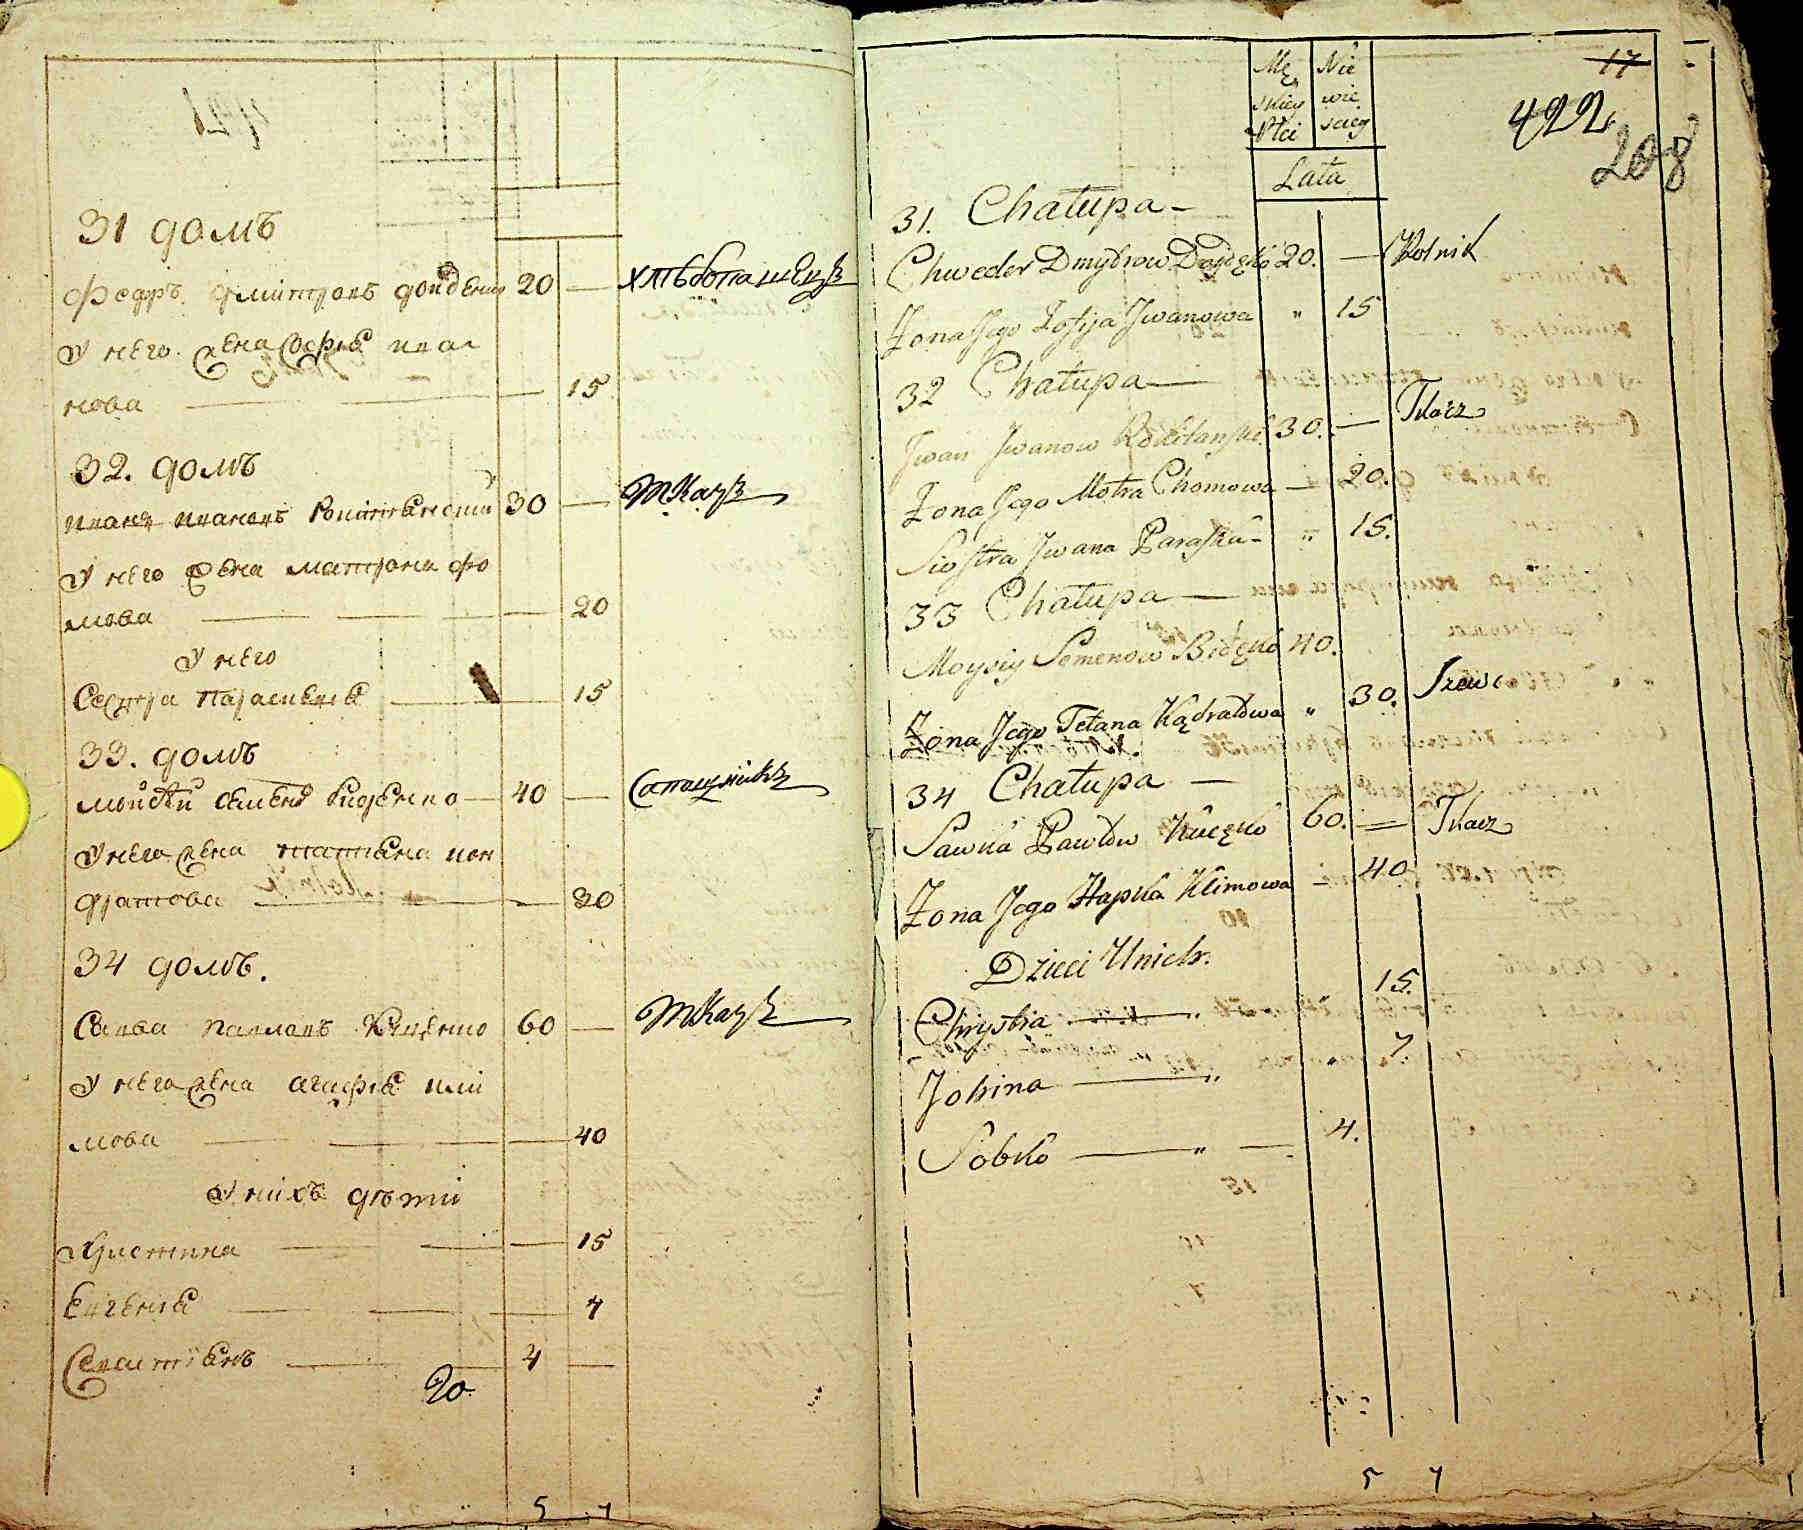 31 домъ
Федръ дмитровъ дойденко 20 — хлѣбопашецъ
У него жена Софья ива
нова — 15
32. домъ
иванъ ивановъ 30 — Ткачъ
У него жена матрона фо
мова — 20
У него
Сестра параскевья — 15
33. домъ
мойсѣй семеновъ биденко — 40 — Сапожникъ
У него жена татьяна кон
дратова — 30
34 домъ.
Савва павловъ 60 — Ткачъ
У него жена агафья кли
мова — 40
У нихъ дѣти
Христина — 15
Евгенья — 7
Севастьянъ — 4 —
20
5 7
17
422
208
Mę Nie
skiey wie
Płci sciey
Lata
31. Chałupa —
Chweder Dmytrow 20. — Rolnik
Żona Jego Zofija Jwanowa " 15
32 Chałupa —
Jwan Jwanow 30. — Tkacz
Żona Jego Motra Chomowa — 20.
Siostra Jwana Paraska — " 15.
33 Chałupa —
Moysiy Semenow Bidęko 40.
Żona Jego Tetana Kądratowa " 30. Szewc
34 Chałupa —
Sawka Pawłow 60. — Tkacz
Żona Jego Hapka Klimowa — 40
Dzieci Unich.
Chrystia — " 15.
Johina — " 7
Sobko — " — 4.
5 7